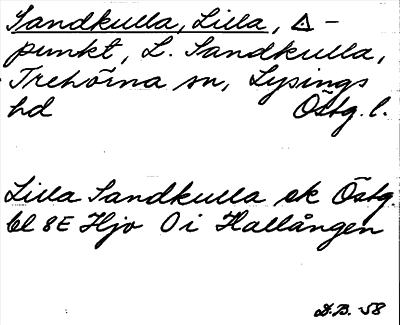 Sandkulla, Lilla, △ –
punkt, L. Sandkulla,
Trehörna sn, Lysings
hd Östg. l.
Lilla Sandkulla ek Östg.
bl 8E Hjo 0i Hallången
D.B. -58